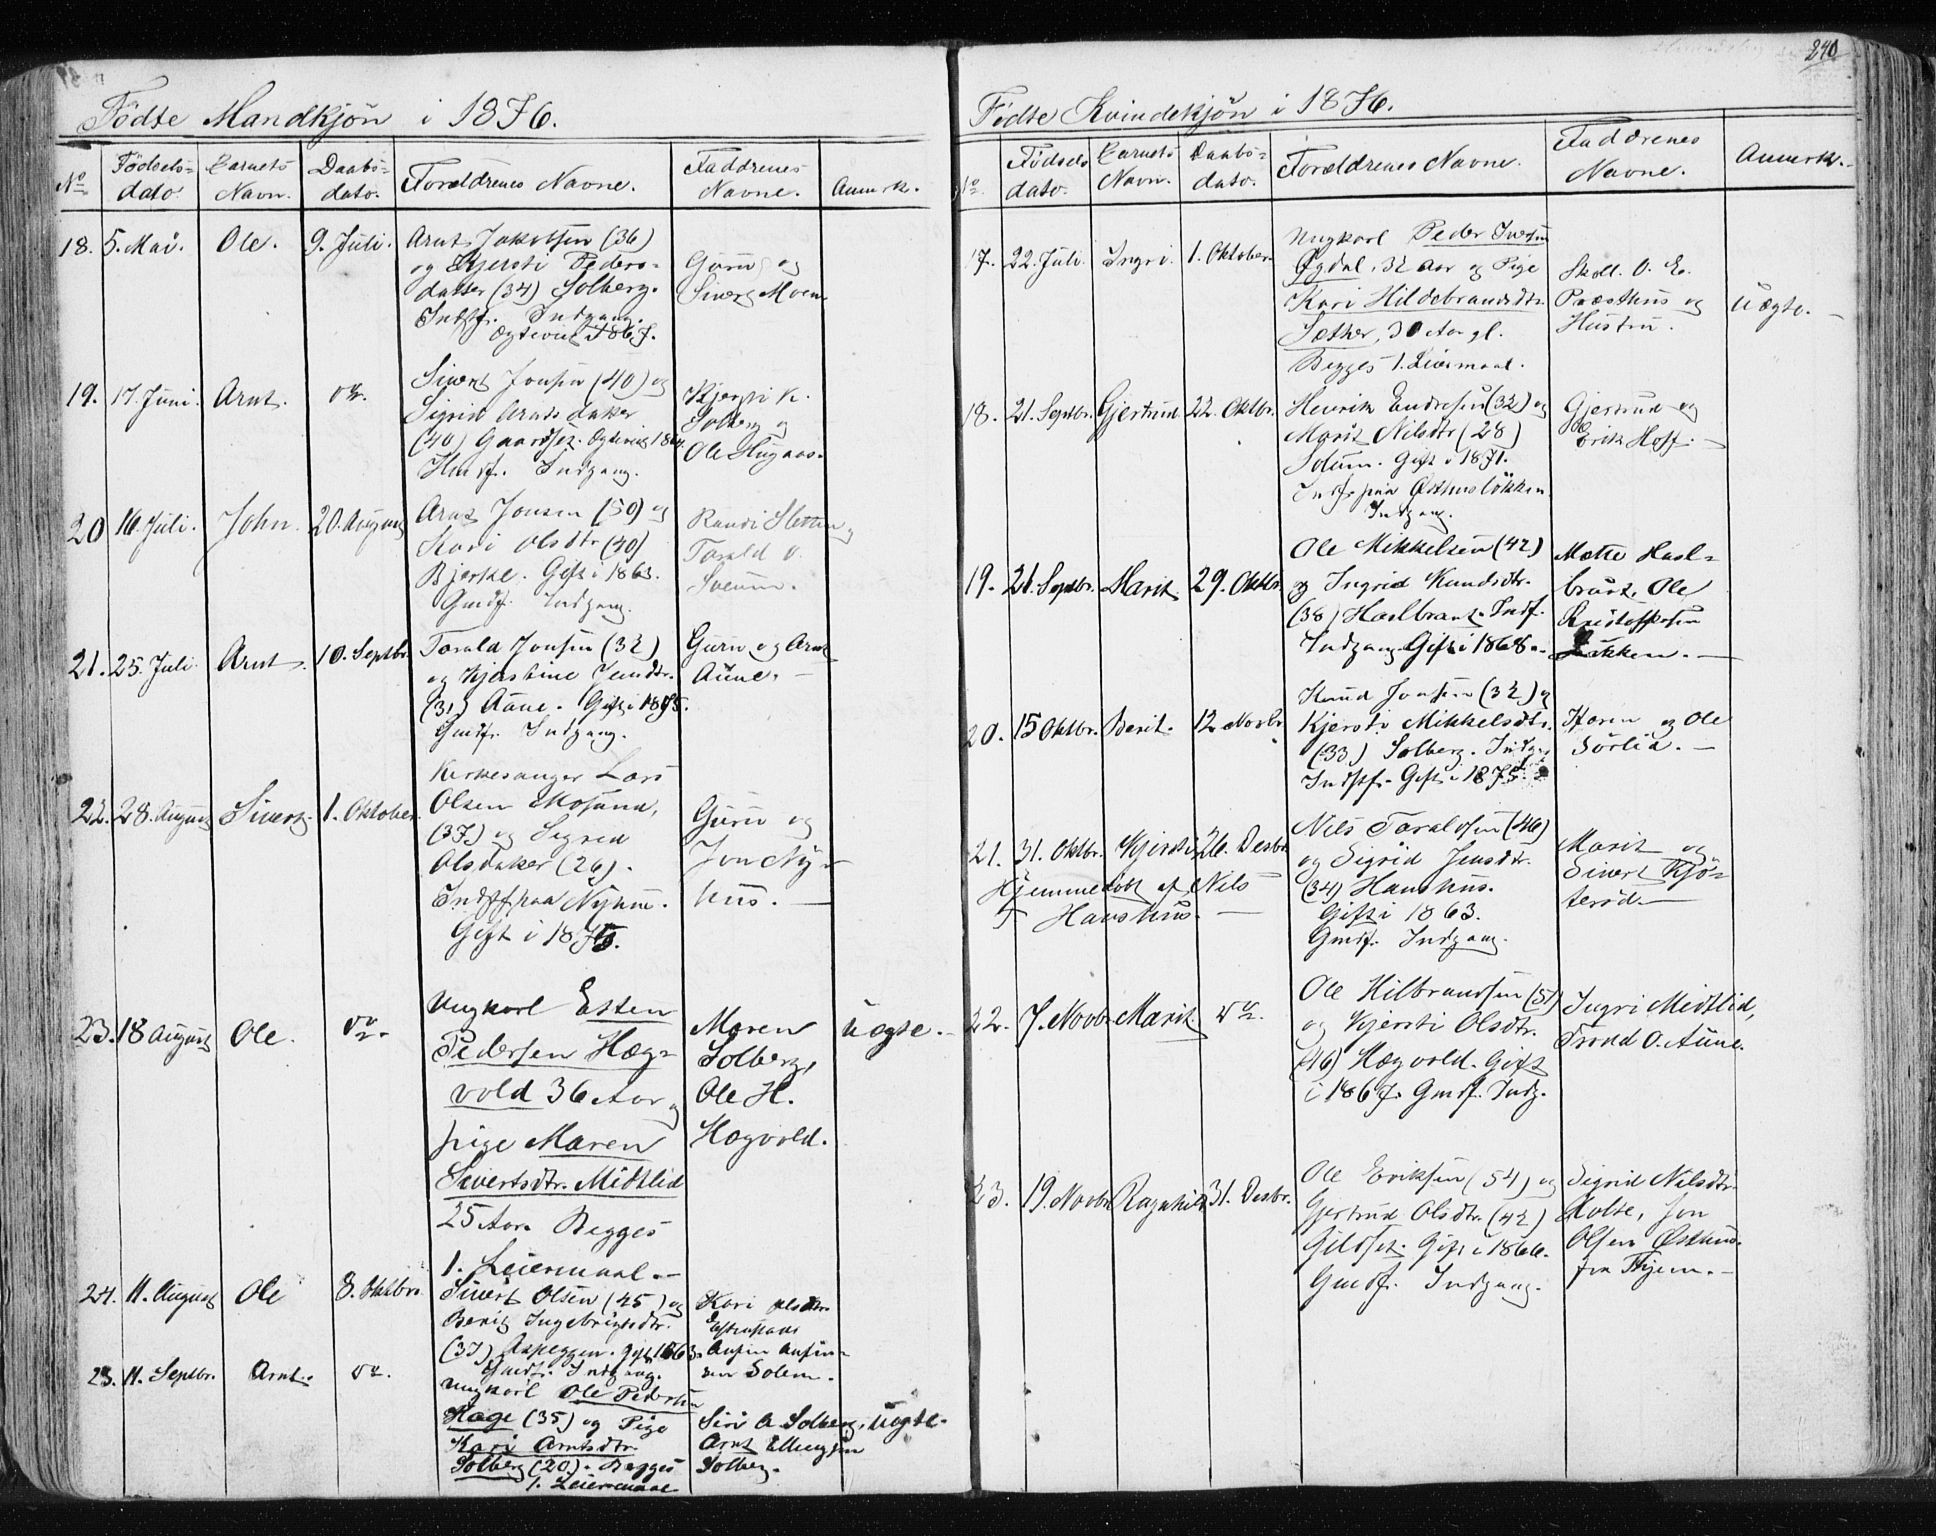 240
Födte Mandkjön i 1876.
No
Födsels-
dato.
Barnets
Navn.
Daabs-
dato.
Foreldrenes Navne.
Faddrenes
Navne.
Anmerk.
18. 5. Mai. Ole. 9. Juli.
Arnt Jakobsen (36)
og Kjersti Peders-
datter (34) Solberg.
Indst. Indgang.
Ægteviet 1867.
Guru og
Sivert Moen.
19. 17. Juni. Arnt. do.
Sivert Jonsen (40) og
Sigrid Arntsdatter
(40) Gaardset. Ægteviet 1864.
Husf. Indgang.
Kjersti K.
Solberg og
Ole Hugaas.
20 16. Juli. John. 20. August
Arnt Jonsen (50) og
Kari Olsdtr (40)
Bjerke. Gift i 1863.
Gmdf. Indgang.
Randi Sletten og
Torald O.
Sveum.
21. 25. Juli. Arnt. 10. Septbr.
Torald Jonsen (32)
og Kjerstine Jensdtr.
(31) Aune. Gift i 1875.
Gmdf. Indgang.
Guru og Arnt
Aune.
22. 28. August Sivert. 1. Oktober.
Kirkesanger Lars
Olsen Mosand,
(37) og Sigrid
Olsdatter (26).
Indst paa Nyhuus.
Gift i 1875.
Guru og
Jon Ny-
huus.
23. 18 August Ole. do.
Ungkarl Esten
Pedersen Hæg-
vold 36 Aar og
pige Maren
Sivertsdtr. Midtlid
25 Aar. Begges
1. Leiermaal.
Maren
Solberg,
Ole H.
Hægvold.
Uægte.
24. 11. August Ole 8. Oktbr.
Sivert Olsen (45) og
Berit Ingebrigtsdtr.
(37) Aspeggen. gift 1863.
Gmdf. Indgang.
Kari Olsdtr
Estenstad
Anfin Anfin-
sen Solem.
25. 11. Septbr. Arnt. do.
Ungkarl Ole Pedersen
Hage (35) og Pige
Kari Arntsdtr.
Solberg (20). Begges
1. Leiermaal
Siri A. Solberg,
Arnt Ellingsen
Solberg.
Uægte.
Födte Kvindekjön i 1876.
No.
Födsels
dato.
Barnets
Navn.
Daabs-
dato.
Foreldrenes Navne.
Faddrenes
Navne.
Anmerk.
17. 22. Juli. Ingri. 1. Oktober.
Ungkarl Peder Iversen
Øgdal, 32 Aar og Pige
Kari Hildebrandsdtr.
Sæther, 30 Aar gl.
Begges 1. Leiermaal.
Skoll. O. E.
Præsthus og
Hustru.
Uægte.
18. 21. Septbr. Gjertrud 22. Oktbr.
Henrik Endresen (32) og
Marit Nilsdtr (28)
Solum. Gift i 1871.
Indst paa Østhuslökken.
Indgang.
Gjertrud og
Erik Hoff.
19. 21. Septbr. Marit 29. Oktbr.
Ole Mikkelsen (42)
og Ingrid Knudsdtr.
(38) Haslbrant. Indf.
Indgang. Gift i 1868.
Mette Hasl-
brant. Ole
Kristoffersen
Lökken.
20. 15 Oktbr. Berit. 12 Novbr.
Knud Jonsen (32) og
Kjersti Mikkelsdtr.
(33) Solberg. Indg.
Indst. Gift i 1875.
Karen og Ole
Sörlid.
21. 31. Oktbr. Kjersti 26. Desbr.
Hjemmedöbt af Nils
T. Hanshus.
Nils Taraldsen (46)
og Sigrid Jensdtr.
(34) Hanshus.
Gift i 1863.
Gmdf. Indgang.
Marit og
Sivert Kjö-
teröd.
22. 7. Novbr. Marit. do.
Ole Hilbrandsen (51)
og Kjersti Olsdtr.
(46) Hægvold. Gift
i 1867. Gmdf. Indg.
Ingri Midtlid,
Trond O. Aune.
23. 19. Novbr. Ragnhild 31. Desbr.
Ole Eriksen (54) og
Gjertrud Olsdtr. (42)
Gildset. Gift i 1866.
Gmdf. Indgang.
Sigrid Nilsdtr.
Holte, Jon
Olsen Østhus
fra Thyem.